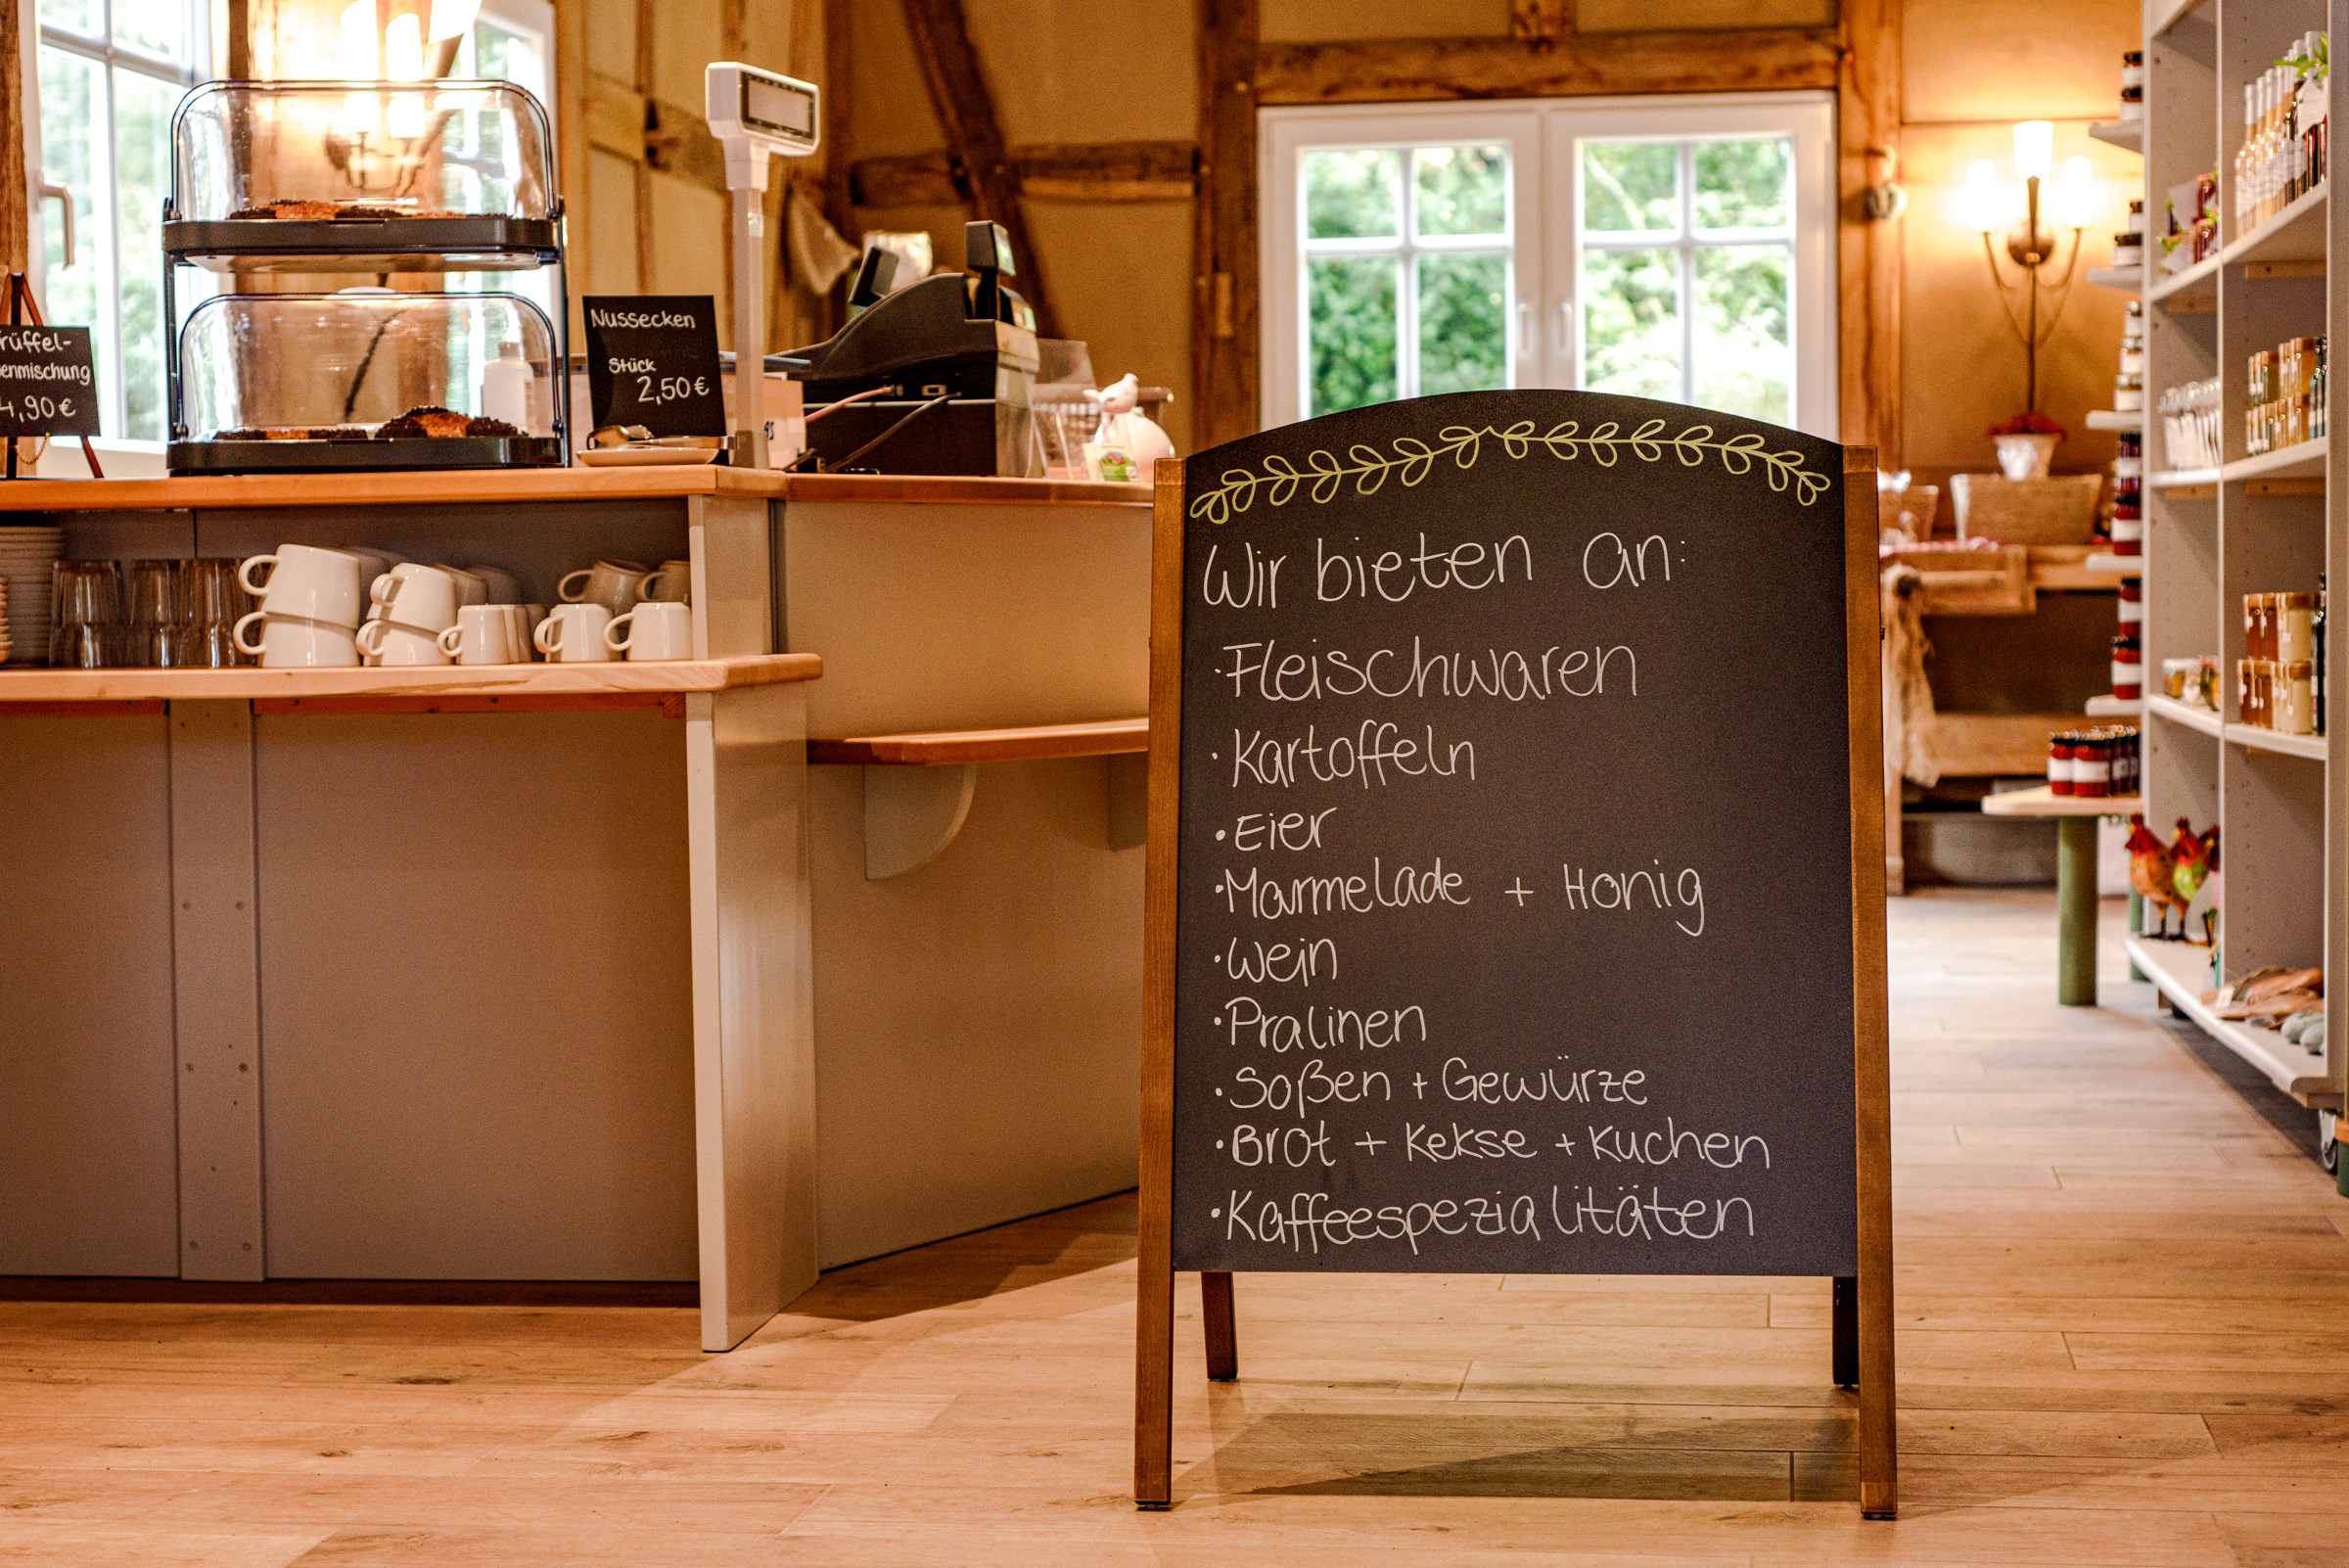 4,90 €
Nussecken
Stück
2,50 €
Wir bieten an:
·Fleischwaren
·Kartoffeln
·Eier
·Marmelade + Honig
·Wein
·Pralinen
·Soßen + Gewürze
·Brot + Kekse + Kuchen
·Kaffeespezialitäten